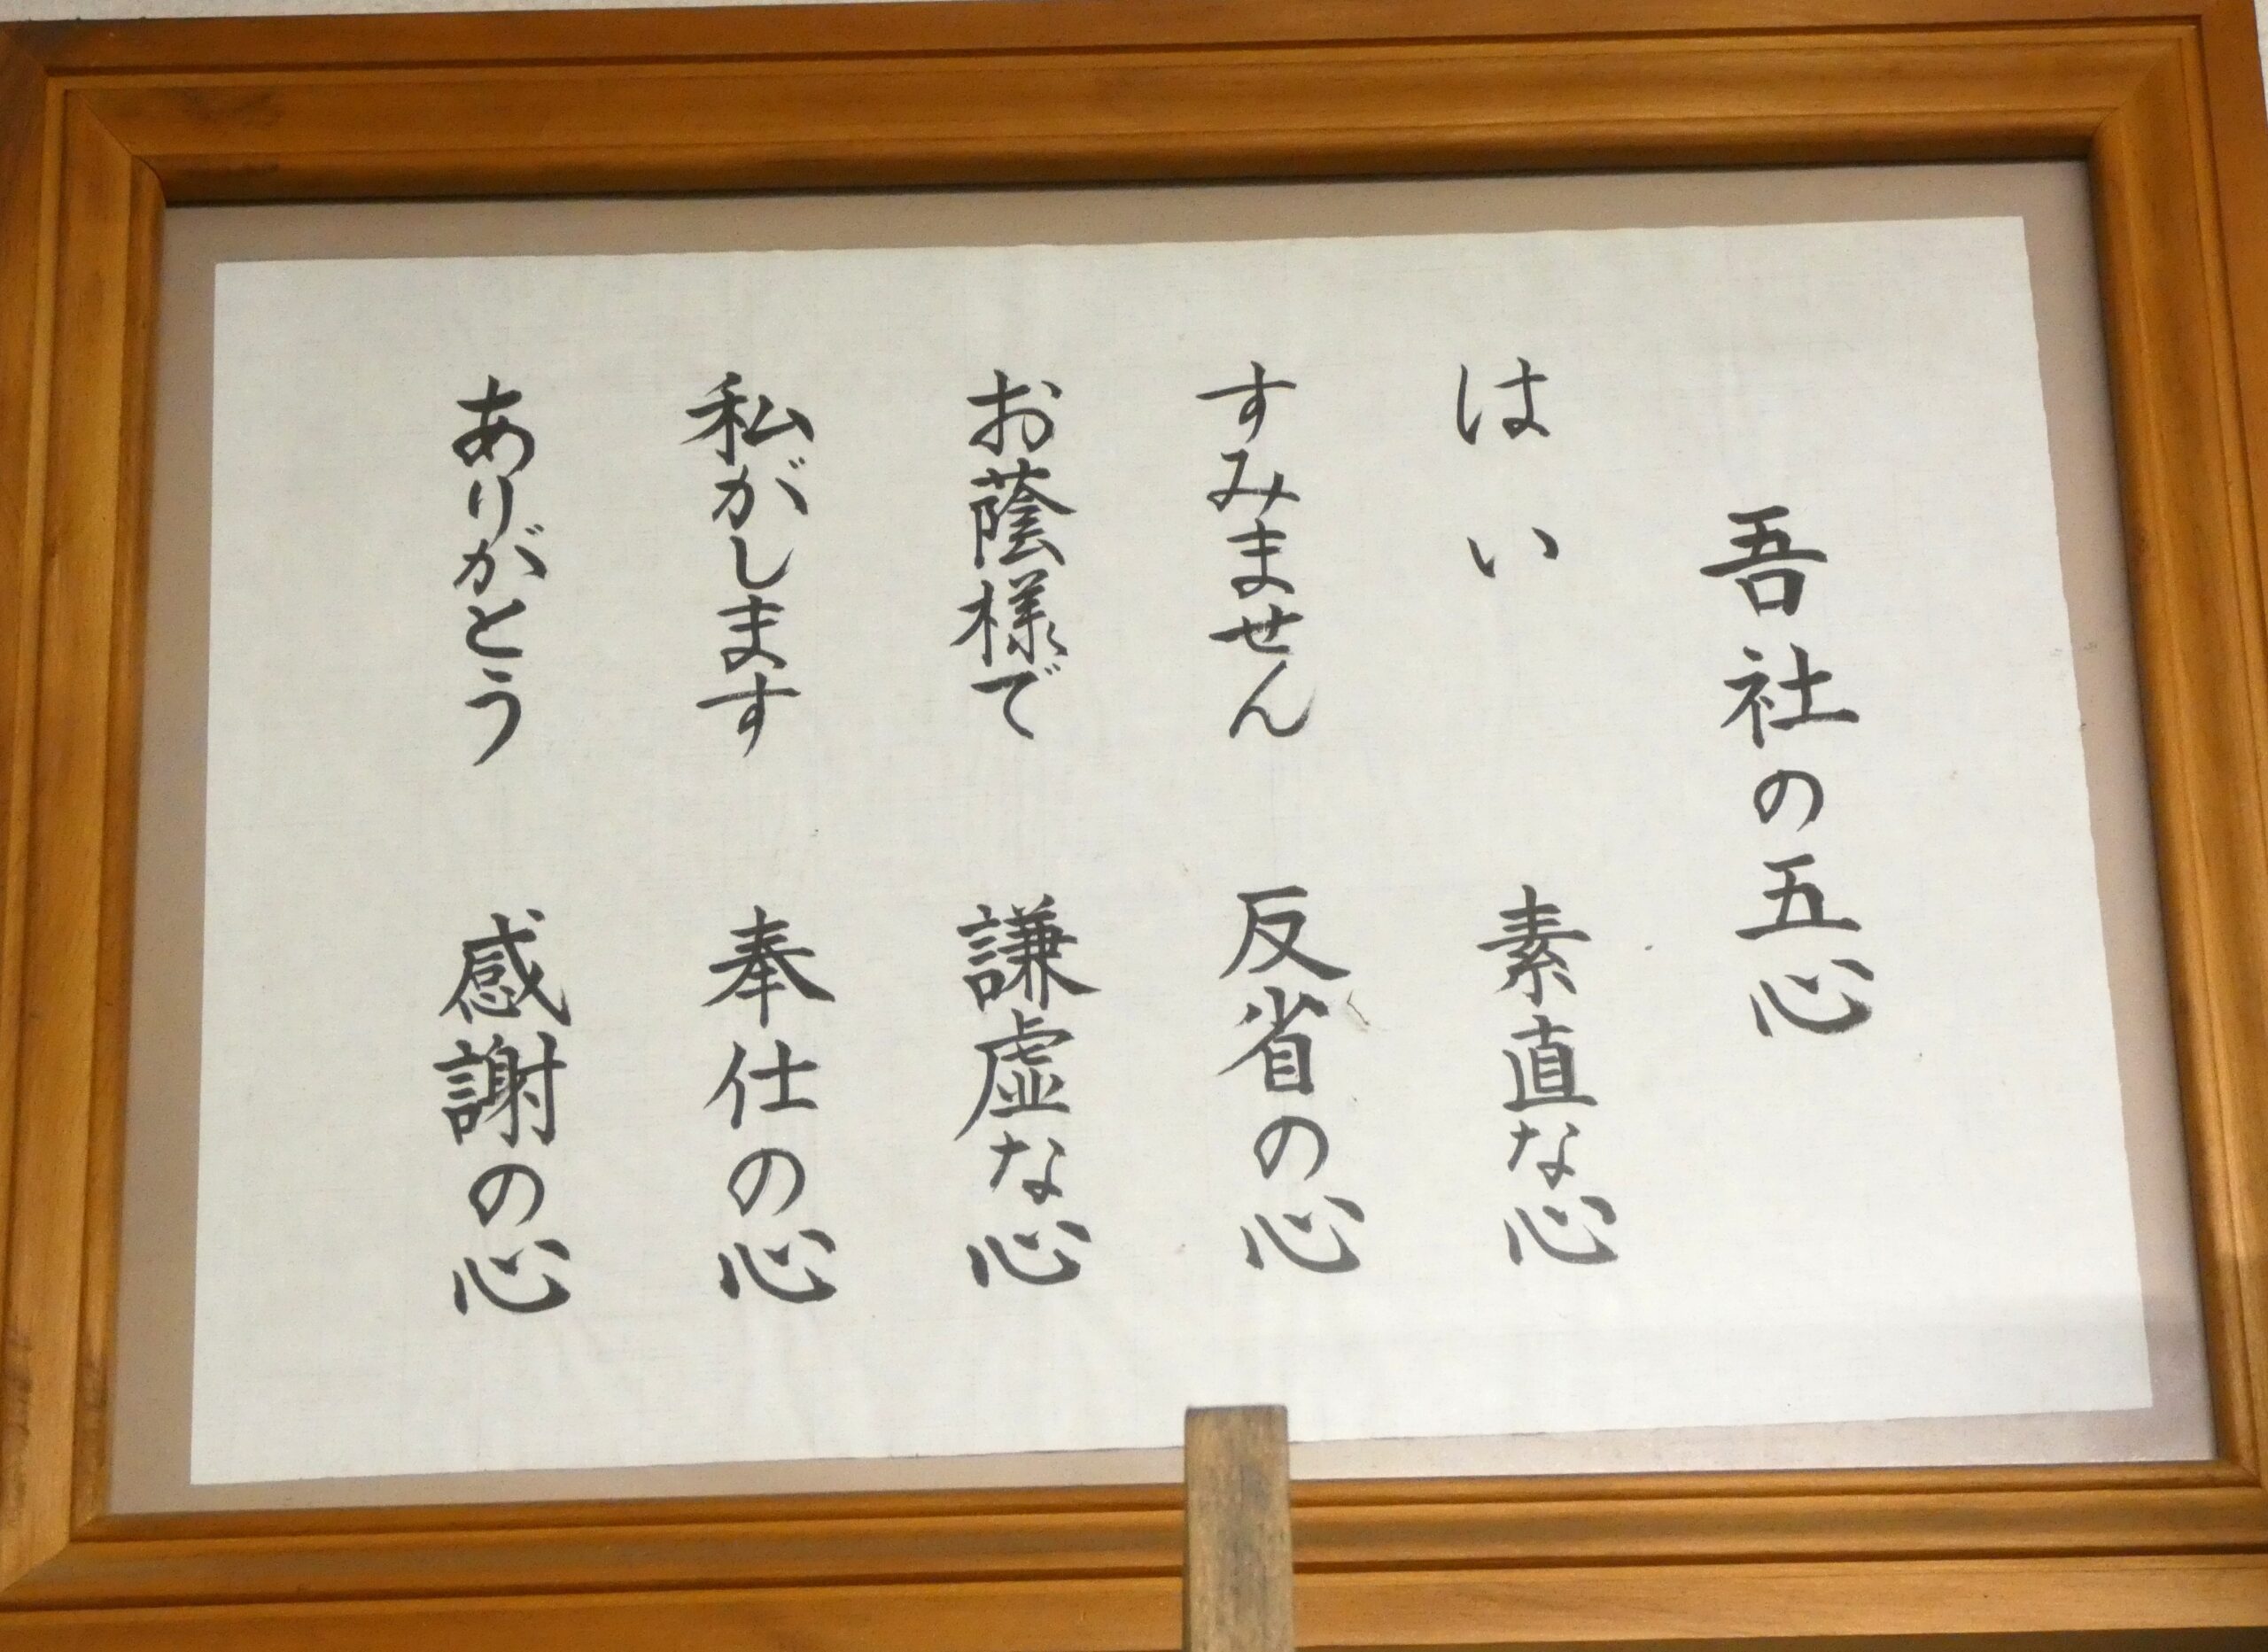 吾社の五心
はい 素直な心
すみません 反省の心
お蔭様で 謙虚な心
私がします 奉仕の心
ありがとう 感謝の心